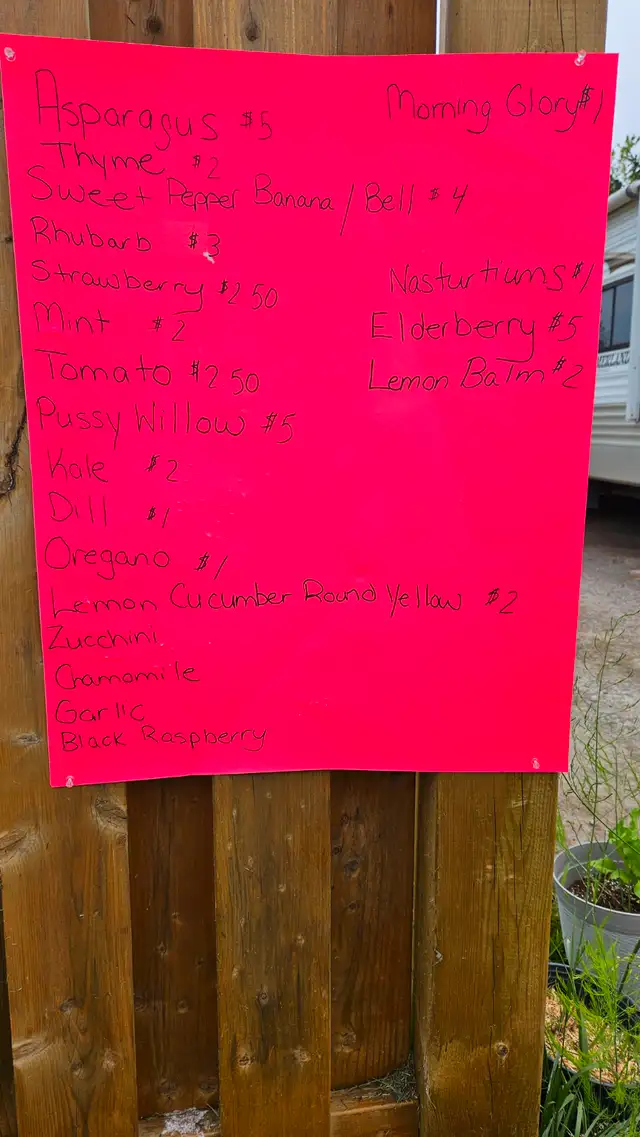 Asparagus $5
Morning Glory $1
Thyme $2
Sweet Pepper Banana / Bell $4
Rhubarb $3
Strawberry $2 50
Nasturtiums $1
Mint $2
Elderberry $5
Tomato $2 50
Lemon Balm $2
Pussy Willow $5
Kale $2
Dill $1
Oregano $1
Lemon Cucumber Round Yellow $2
Zucchini
Chamomile
Garlic
Black Raspberry